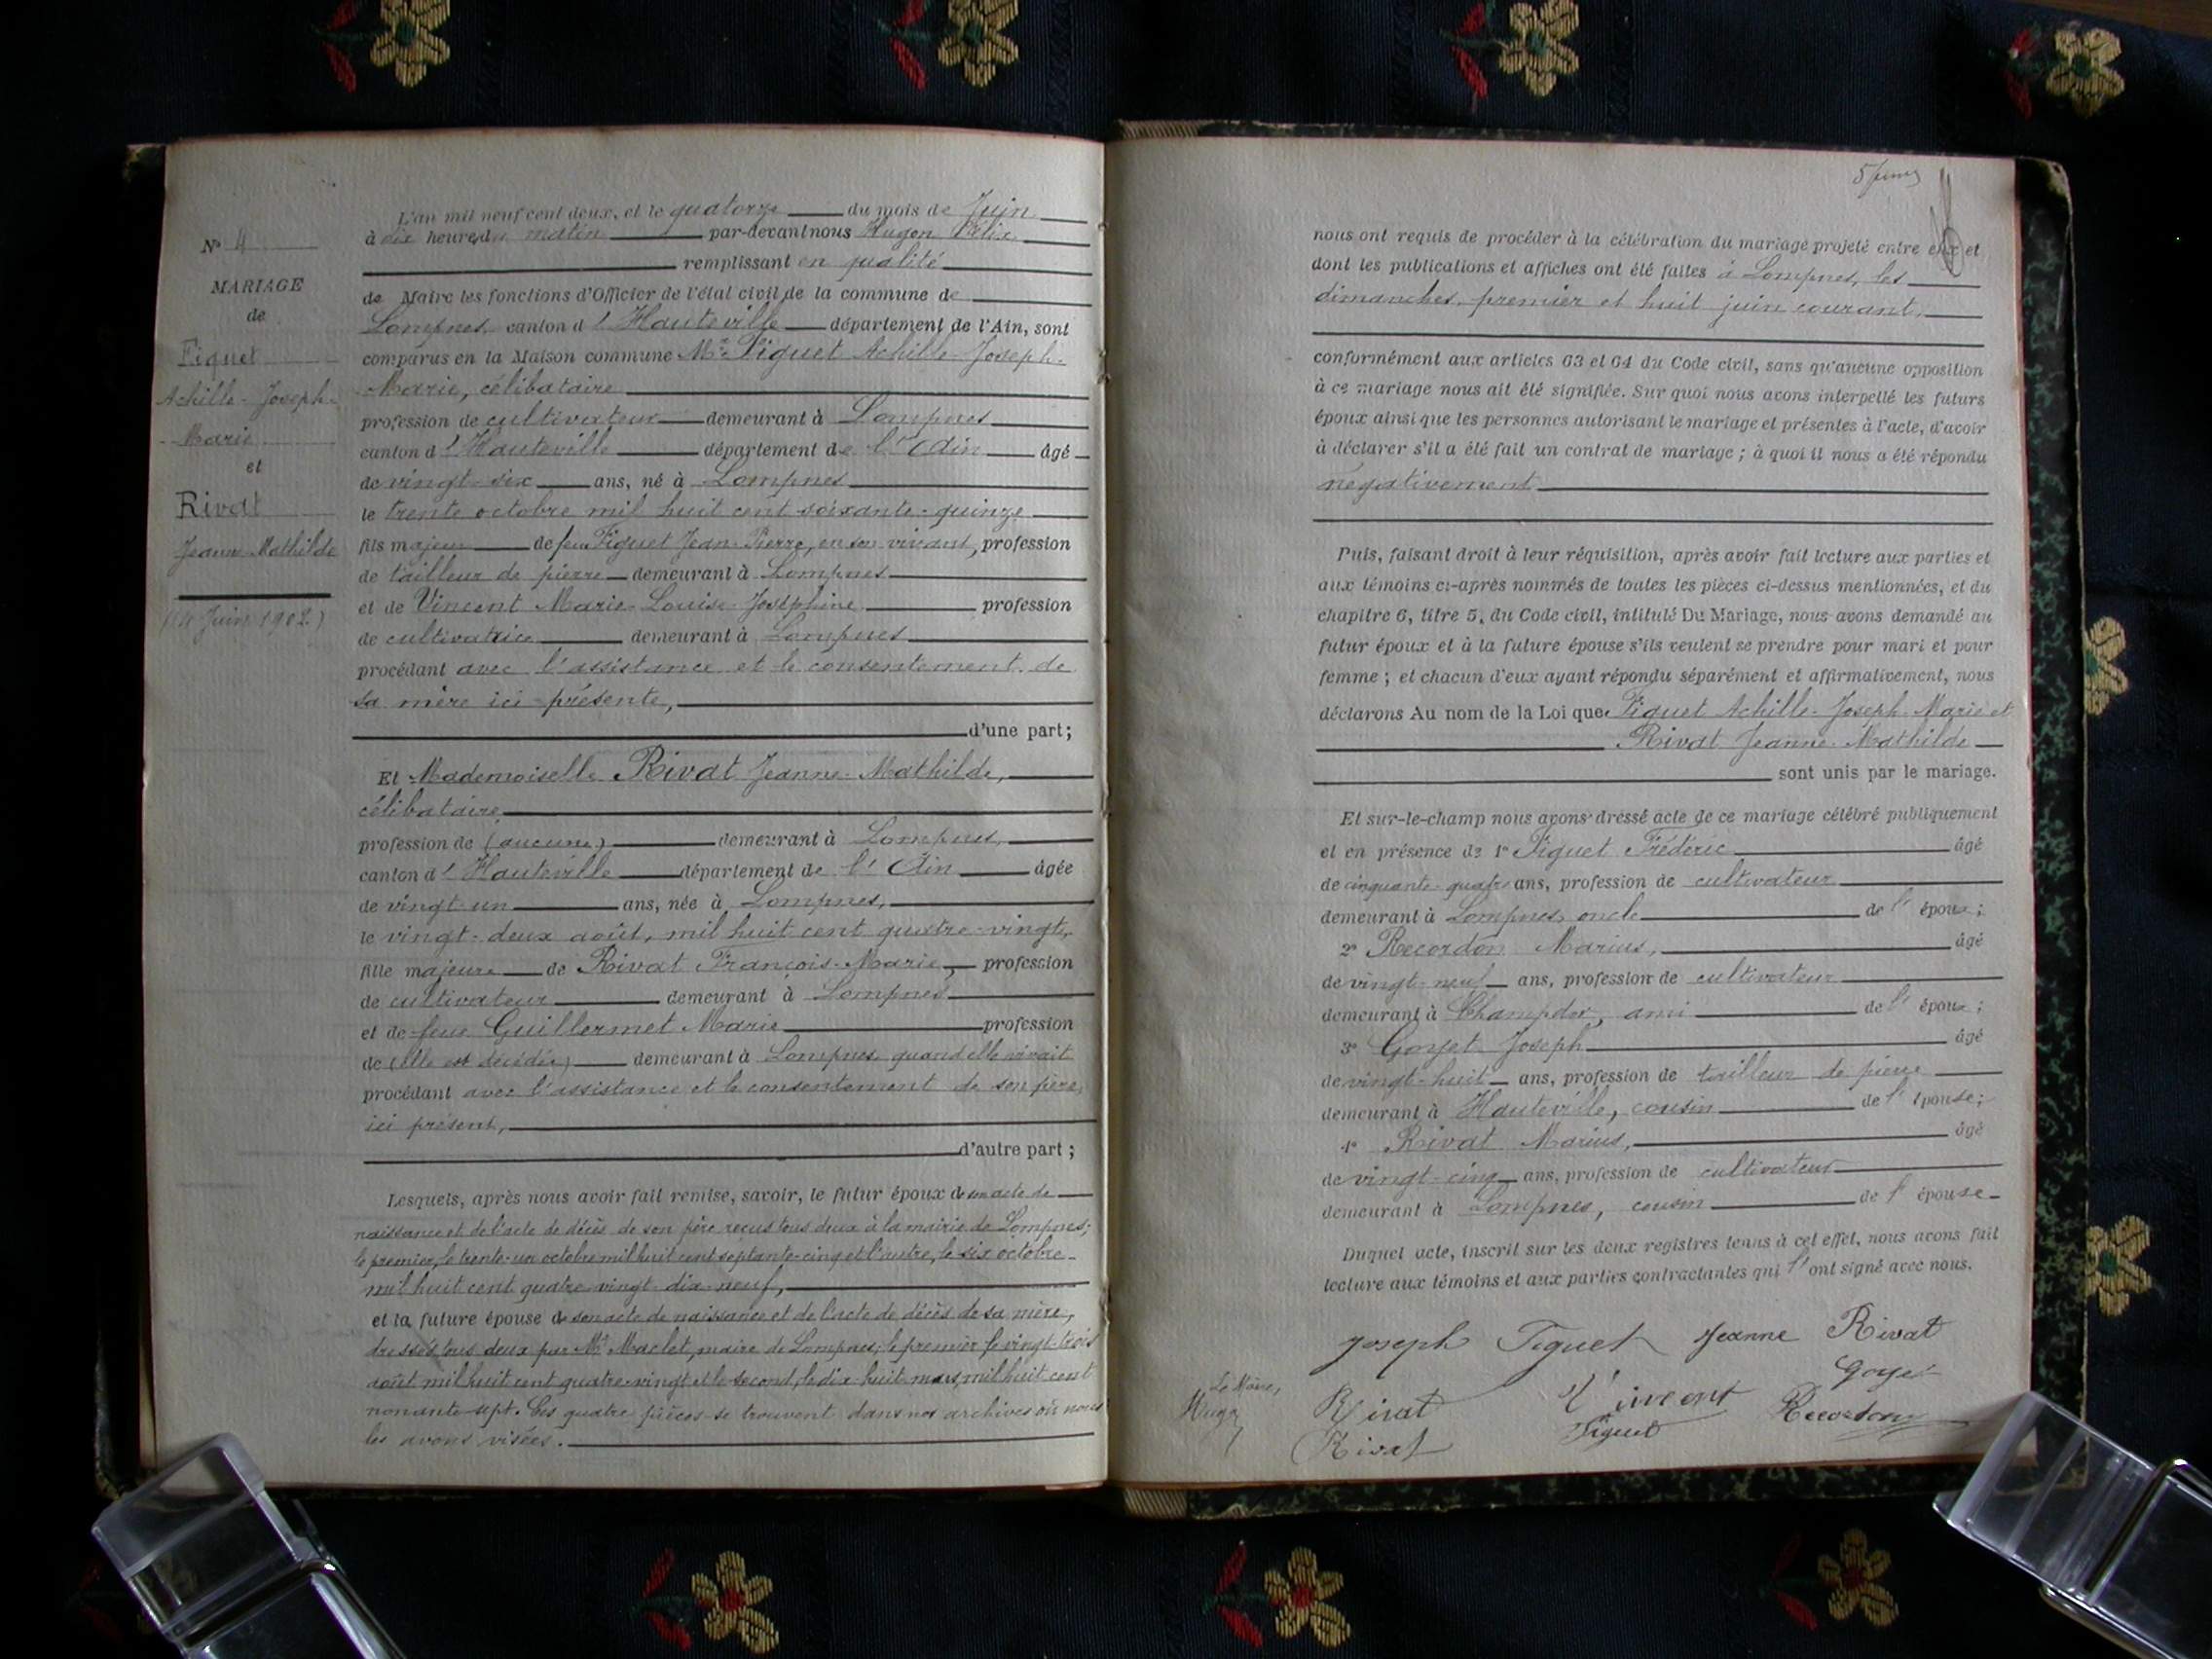 N° 4
MARIAGE
de
Figuet
Achille-Joseph-
Marie
et
Rivat
Jeanne Mathilde
(14 Juin 1902)
L'an mil neuf cent deux, et le quatorze du mois de Juin
à dix heures du matin par-devant nous Hugon Félix
remplissant en qualité
de Maire les fonctions d'Officier de l'état civil de la commune de
Lompnes, canton d'Hauteville département de l'Ain, sont
comparus en la Maison commune Mr Figuet Achille-Joseph-
Marie, célibataire
profession de cultivateur demeurant à Lompnes
canton d'Hauteville département de l'Ain âgé
de vingt-six ans, né à Lompnes
le trente octobre mil huit cent soixante-quinze
fils majeur de feu Figuet Jean-Pierre, en son vivant, profession
de tailleur de pierre demeurant à Lompnes
et de Vincent Marie-Louise-Joséphine profession
de cultivatrice demeurant à Lompnes
procédant avec l'assistance et le consentement de
sa mère ici présente,
d'une part;
Et Mademoiselle Rivat Jeanne-Mathilde,
célibataire
profession de (aucune) demeurant à Lompnes,
canton d'Hauteville département de l'Ain âgée
de vingt-un ans, née à Lompnes,
le vingt-deux août, mil huit cent quatre-vingt,
fille majeure de Rivat François-Marie, profession
de cultivateur demeurant à Lompnes
et de feue Guillermet Marie profession
de (elle est décédée) demeurant à Lompnes quand elle vivait
procédant avec l'assistance et le consentement de son père,
ici présent,
d'autre part;
Lesquels, après nous avoir fait remise, savoir, le futur époux de son acte de
naissance et de l'acte de décès de son père reçus tous deux à la mairie de Lompnes;
le premier, le trente-un octobre mil huit cent septante-cinq et l'autre, le six octobre
mil huit cent quatre-vingt-dix-neuf,
et la future épouse de son acte de naissance et de l'acte de décès de sa mère,
dressés tous deux par Mr Maclet, maire de Lompnes; le premier le vingt-trois
août mil huit cent quatre-vingt et le second, le dix-huit mars, mil huit cent
nonante-sept. Ces quatre pièces se trouvent dans nos archives où nous
les avons visées.
nous ont requis de procéder à la célébration du mariage projeté entre eux et
dont les publications et affiches ont été faites à Lompnes, les
dimanches, premier et huit juin courant,
conformément aux articles 63 et 64 du Code civil, sans qu'aucune opposition
à ce mariage nous ait été signifiée. Sur quoi nous avons interpellé les futurs
époux ainsi que les personnes autorisant le mariage et présentes à l'acte, d'avoir
à déclarer s'il a été fait un contrat de mariage; à quoi il nous a été répondu
négativement
Puis, faisant droit à leur réquisition, après avoir fait lecture aux parties et
aux témoins ci-après nommés de toutes les pièces ci-dessus mentionnées, et du
chapitre 6, titre 5, du Code civil, intitulé Du Mariage, nous avons demandé au
futur époux et à la future épouse s'ils veulent se prendre pour mari et pour
femme; et chacun d'eux ayant répondu séparément et affirmativement, nous
déclarons Au nom de la Loi que Figuet Achille-Joseph-Marie et
Rivat Jeanne-Mathilde
sont unis par le mariage.
Et sur-le-champ nous avons dressé acte de ce mariage célébré publiquement
et en présence de 1° Figuet Frédéric âgé
de cinquante-quatre ans, profession de cultivateur
demeurant à Lompnes, oncle de l'époux;
2° Recordon Marius, âgé
de vingt-neuf ans, profession de cultivateur
demeurant à Champdor, ami de l'époux;
3° Goyet Joseph âgé
de vingt-huit ans, profession de tailleur de pierre
demeurant à Hauteville, cousin de l'épouse;
4° Rivat Marius, âgé
de vingt-cinq ans, profession de cultivateur
demeurant à Lompnes, cousin de l'épouse
Duquel acte, inscrit sur les deux registres tenus à cet effet, nous avons fait
lecture aux témoins et aux parties contractantes qui l'ont signé avec nous.
Joseph Figuet Jeanne Rivat
Goyet
Le Maire,
Rivat Vincent Recordon
Figuet
Rivat